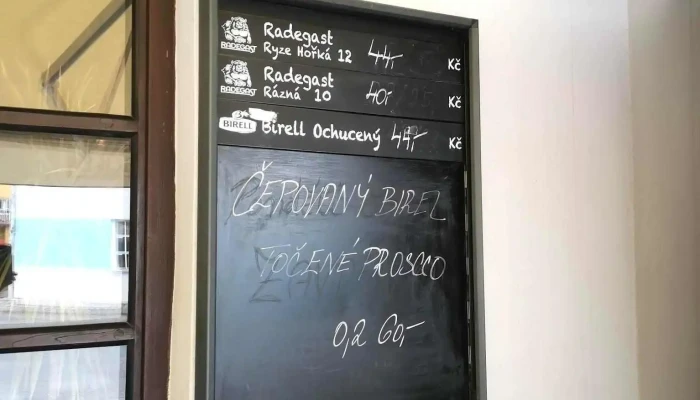 RADEGAST
Radegast
Ryze Hořká 12 44,- Kč
RADEGAST
Radegast
Rázná 10 40,- Kč
BIRELL
Birell Ochucený 44,- Kč
ČEPOVANÝ BIREL
TOČENÉ PROSCCO
0,2 60,-